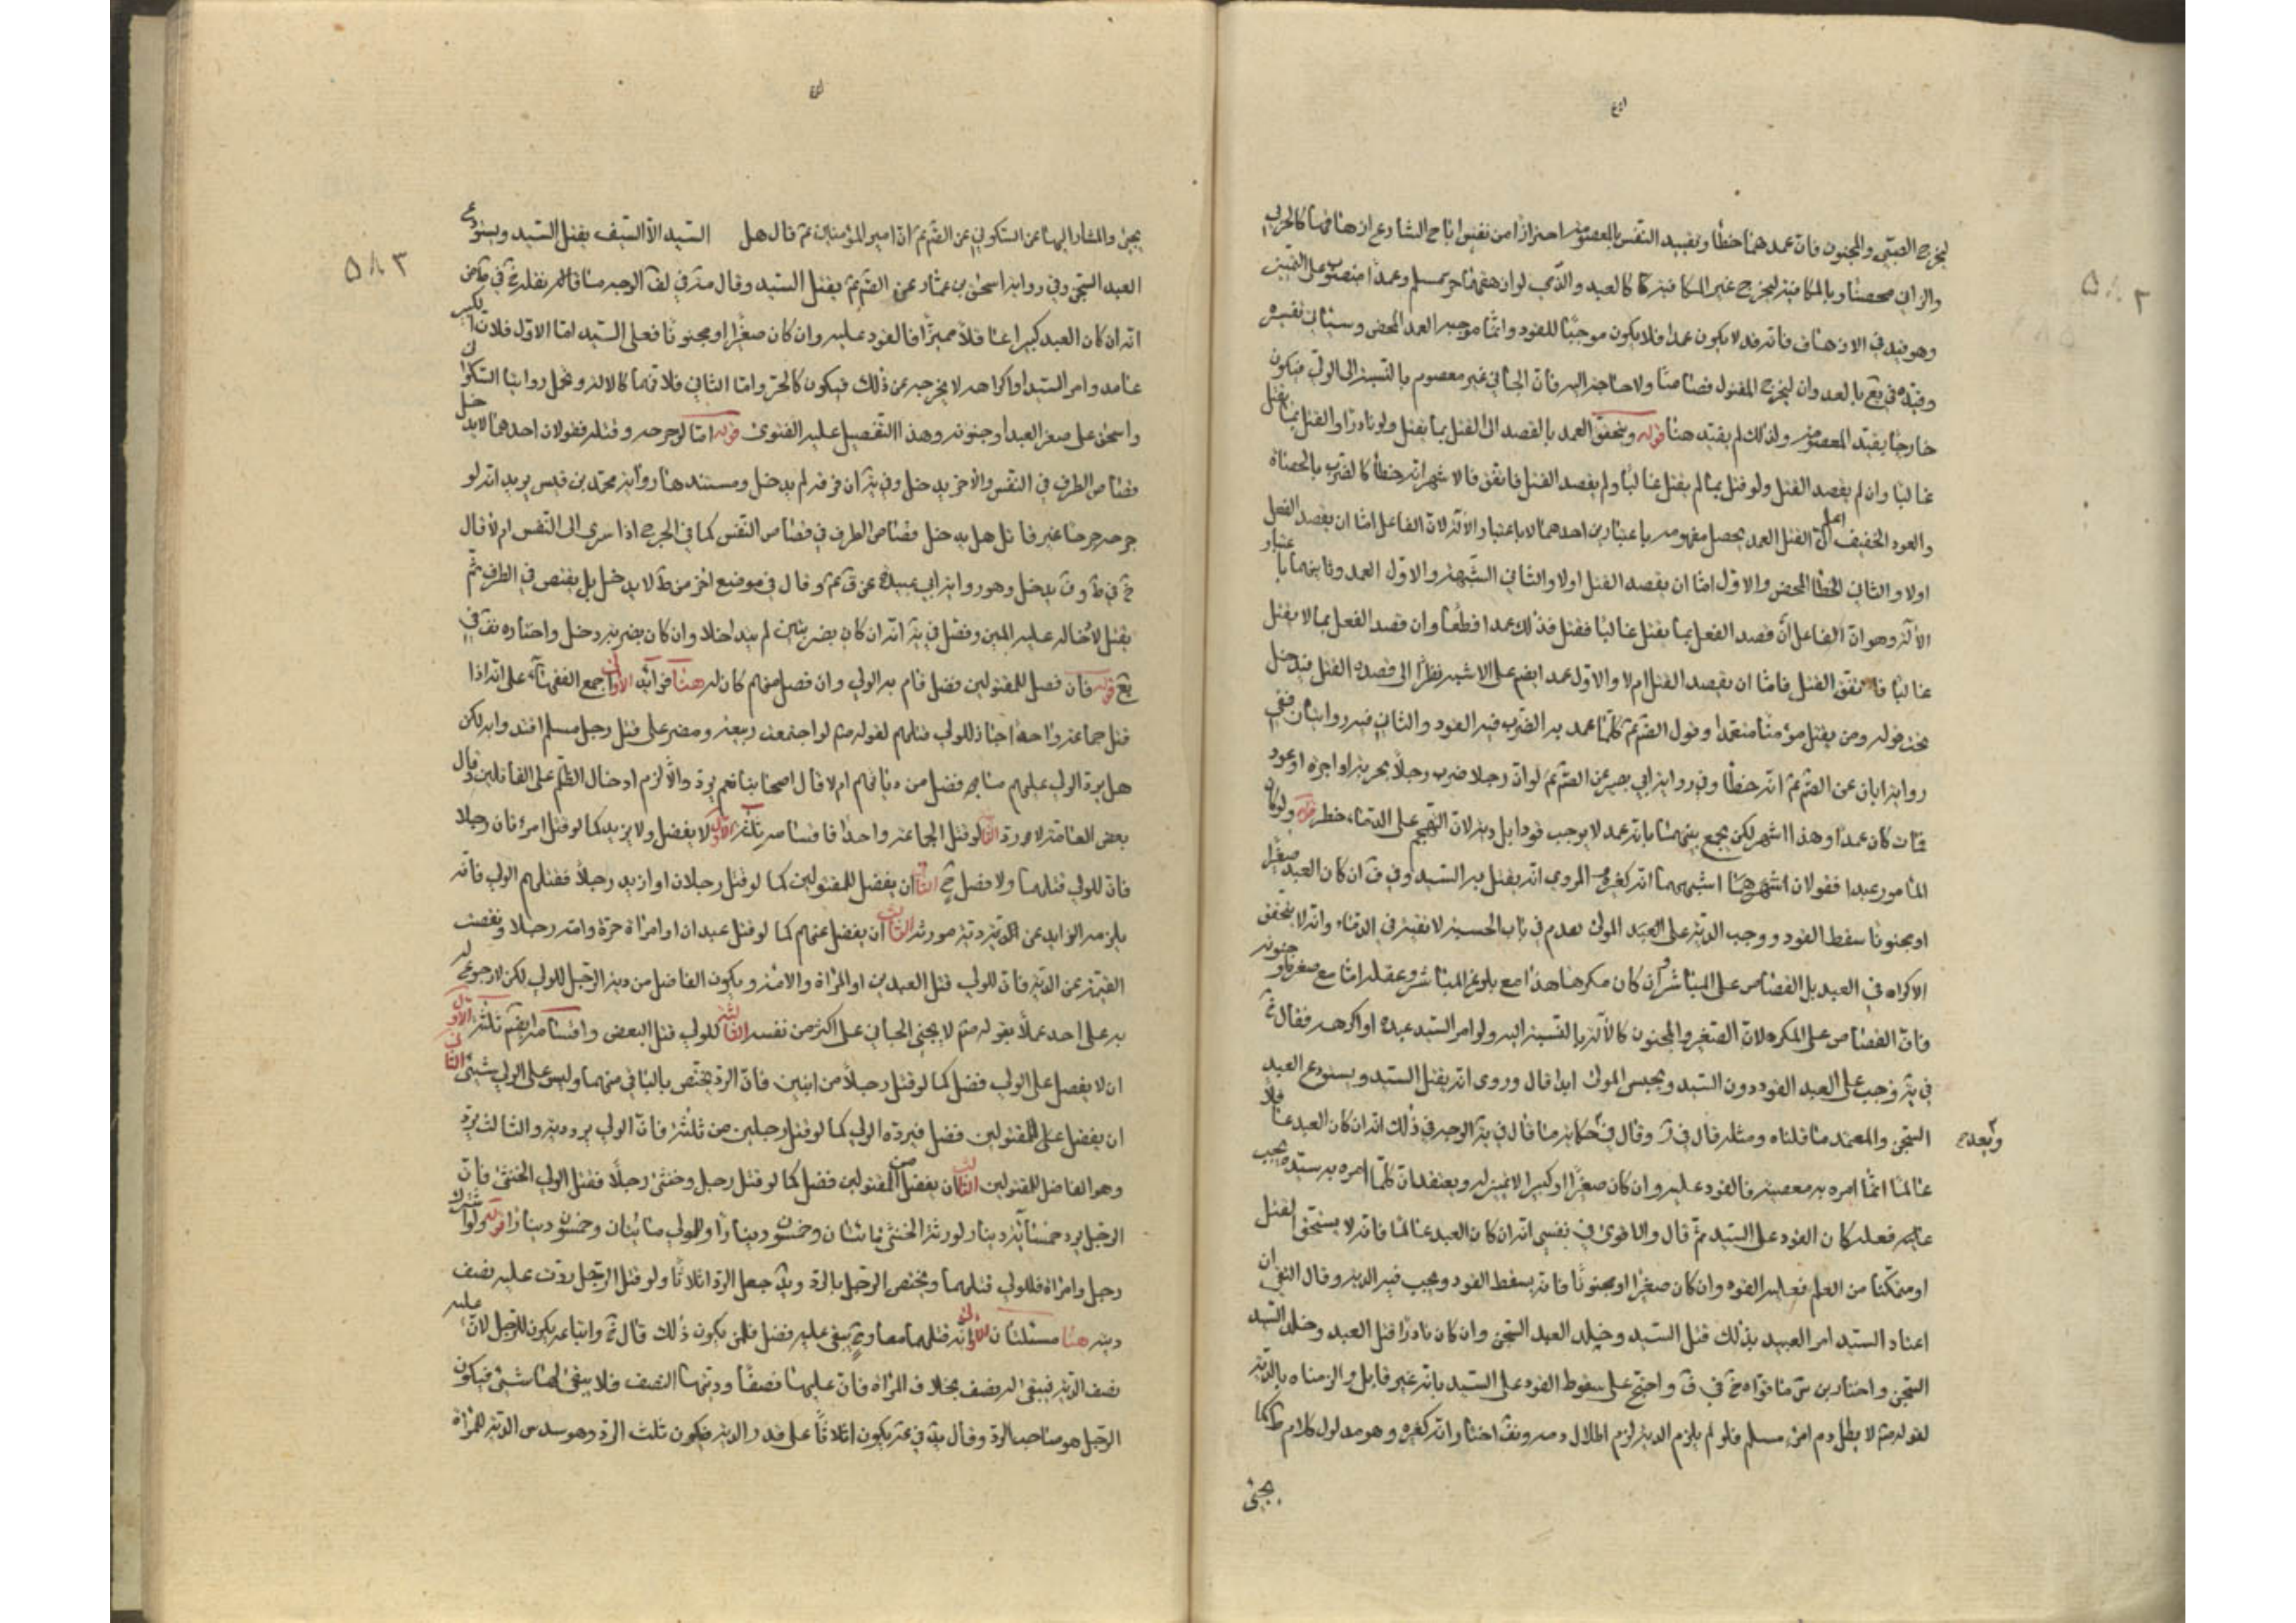 ليخرج الصبي والمجنون فان عمدهما خطأ وتقييد النفس بالمعصومة احترازا من نفس اباح الشارع ازهاقها كالحربي
والزاني محصنا وبالمكافية ليخرج غير المكافية كالعبد والذمي لو ازهقهما حر مسلم وعمدا منصوب على التمييز
وهو قيد في الازهاق فانه قد لا يكون عمدا فلا يكون موجبا للقود وانما موجبه العمد المحض وسياتي تفسيره
وقيده في يع بالعدوان ليخرج المقتول قصاصا ولا حاجة اليه فان الجاني غير معصوم بالنسبة الى الولي فيكون
خارجا بقيد المعصومة ولذلك لم يقيد هنا قوله ويتحقق العمد بالقصد الى القتل بما يقتل ولو نادرا او القتل بما يقتل
غالبا وان لم يقصد القتل ولو قتل بما لم يقتل غالبا ولم يقصد القتل فاتفق فالاشهر انه خطأ كالضرب بالحصاة
والعود الخفيف اعلم ان القتل العمد يحصل مفهومه باعتبارين احدهما لا باعتبار الآلة لان الفاعل اما ان يقصد الفعل
اولا والثاني الخطأ المحض والاول اما ان يقصد القتل اولا والثاني الشبهة والاول العمد وثانيهما باعتبار
الآلة وهو ان الفاعل ان قصد الفعل بما يقتل غالبا فقتل فذلك عمدا قطعا وان قصد الفعل بما لا يقتل
غالبا فاتفق القتل فاما ان يقصد القتل ام لا والاول عمد ايضا على الاشبه نظرا الى قصده القتل فيدخل
تحت قوله ومن يقتل مؤمنا متعمدا وقول الصم كلما عمد به الضرب فيه القود والثاني فيه روايتان ففي
رواية ابان عن الصم انه خطأ وفي رواية ابي بصير عن الصم لو ان رجلا ضرب رجلا بحربة او اجرة او عود
فمات كان عمدا وهذا اشهر لكن يجمع بينهما بانه عمد لا يوجب قودا بل دية لان التهجم على الدماء خطر قوله ولو كان
المأمور عبدا فقولان اشهرهما اشبههما انه كغيره والمروي انه يقتل به السيد وفي ف ان كان العبد صغيرا
او مجنونا سقط القود ووجب الدية على السيد المولى
الاكراه في العبد بل القصاص على المباشر ان كان مكرها هذا مع بلوغ المباشر وعقله اما مع صغره او جنونه
فان القصاص على المكره لان الصغير والمجنون كالآلة بالنسبة اليه ولو امر السيد عبده او اكرهه فقال خ
في ية وجب على العبد القود دون السيد ويحبس المولى ابدا قال وروى انه يقتل السيد ويستودع العبد
السجن والمعتمد ما قلناه ومثله قال في ر وقال في حكاية ما قال في ية الوجه في ذلك انه ان كان العبد عاقلا
عالما انما امره به معصية فالقود عليه وان كان صغيرا او كبيرا لا تميز له ويعتقد ان كلما امره به سيده يجب
عليه فعله كان القود على السيد ثم قال والاقوى في نفسي انه ان كان العبد عالما فانه لا يستحق القتل
او متمكنا من العلم فعليه القود وان كان صغيرا او مجنونا فانه يسقط القود ويجب فيه الدية وقال التقي ان
اعتاد السيد امر العبيد بذلك قتل السيد وخلد العبد السجن وان كان نادرا قتل العبد وخلد السيد
السجن واختار بن س ما قواه خ في ف واحتج على سقوط القود على السيد بانه غير قاتل والزمناه بالدية
لقوله ص لا يطل دم امرء مسلم فلو لم يلزم الدية لزم اطلال دمه ونق اختار انه كغيره وهو مدلول كلام ط كما
يجئ
يجئ والمشار اليها عن السكوني عن الصم ان امير المؤمنين ع قال هل السيد الا السيف يقتل السيد ويستودع
العبد السجن وفي رواية اسحق بن عمار عن الصم يقتل السيد وقال مة في لف الوجه ما قاله
انه ان كان العبد كبيرا عاقلا مميزا فالقود عليه وان كان صغيرا او مجنونا فعلى السيد اما الاول فلان الكبير
عامد وامر السيد او اكراهه لا يخرجه عن ذلك فيكون كالحر واما الثاني فلانهما كالالة ونحمل روايتا السكوني
واسحق على صغر العبد او جنونه وهذا التفصيل عليه الفتوى قوله اما لو جرحه وقتله فقولان احدهما لا يدخل
قصاص الطرف في النفس والآخر يدخل وفي ية ان فرقه لم يدخل ومستندها رواية محمد بن قيس يريد انه لو
جرحه جرحا غير قاتل هل يدخل قصاص الطرف في قصاص النفس كما في الجرح اذا سرى الى النفس ام لا قال
خ في ط و ف يدخل وهو رواية ابي عبيدة عن قم وقال في موضع اخر من ط لا يدخل بل يقتص في الطرف ثم
يقتل لاحالة عليه المبين وفصل في ية انه ان كان بضربتين لم يتداخلا وان كان بضربة دخل واختاره نق في
يع قوله فان فضل للمقتولين فضل قام به الولي وان فضل منهم كان له هنا فوائد الاولى اجمع الفقهاء على انه اذا
قتل جماعة واحدا جاز للولي قتلهم لقوله ص لو اجتمعت ربيعة ومضر على قتل رجل مسلم اقتدوا به لكن
هل يرد الولي عليهم ما يفضل من دياتهم ام لا قال اصحابنا نعم يرد والا لزم ادخال الظلم على القاتلين وقال
بعض العامة لا يرد الثانية لو قتل الجماعة واحدا فاقسامه ثلثة الاول لا يفضل ولا يزيد كما لو قتل امرءتان رجلا
فان للولي قتلهما ولا فضل ح الثاني ان يفضل للمقتولين كما لو قتل رجلان او ازيد رجلا فقتلهم الولي فانه
يلزمه الزايد عن الدية دية مورثه الثالث ان يفضل عنهم كما لو قتل عبدان او امرأة حرة وامة رجلا ونقصت
القيمة عن الدية فان للولي قتل العبدين او المرأة والامة ويكون الفاضل من دية الرجل للولي لكن لا رجوع له
به على احد عملا بقوله ص لا يجني الجاني على اكثر من نفسه الثالثة للولي قتل البعض واقسامه ايضم ثلثة الاول
ان لا يفضل على الولي فضل كما لو قتل رجلا من اثنين فان الرد يختص بالباقي منهما وليس على الولي شيئ الثاني
ان يفضل على المقتولين فضل فيرده الولي كما لو قتل رجلين من ثلثة فان الولي يرد دية والثالث يرد
وهو الفاضل للمقتولين الثالث ان يفضل من المقتولين فضل كما لو قتل رجل وخنثى رجلا فقتل الولي الخنثى فان
الرجل يرد خمسمائة دينار لورثة الخنثى مائتان وخمسون دينارا وللولي مائتان وخمسون دينارا قوله ولو اشترك
رجل وامرأة فللولي قتلهما ويختص الرجل بالرد ويد جعل الرد اثلاثا ولو قتل الرجل ردت عليه نصف
ديته هنا مسئلتان الاولى انه قتلهما معا وح يبقى عليه فضل فلمن يكون ذلك قال خ واتباعه يكون للرجل لان عليه
نصف الدية فيبقى له نصف بخلاف المرأة فان عليها نصفا وديتها النصف فلا يبقى لها شيئ فيكون
الرجل هو صاحب الرد وقال يد في عة يكون اثلاثا على قدر الدية فيكون ثلث الرد وهو سدس الدية للمرأة
٥٨٢
٥٨٣